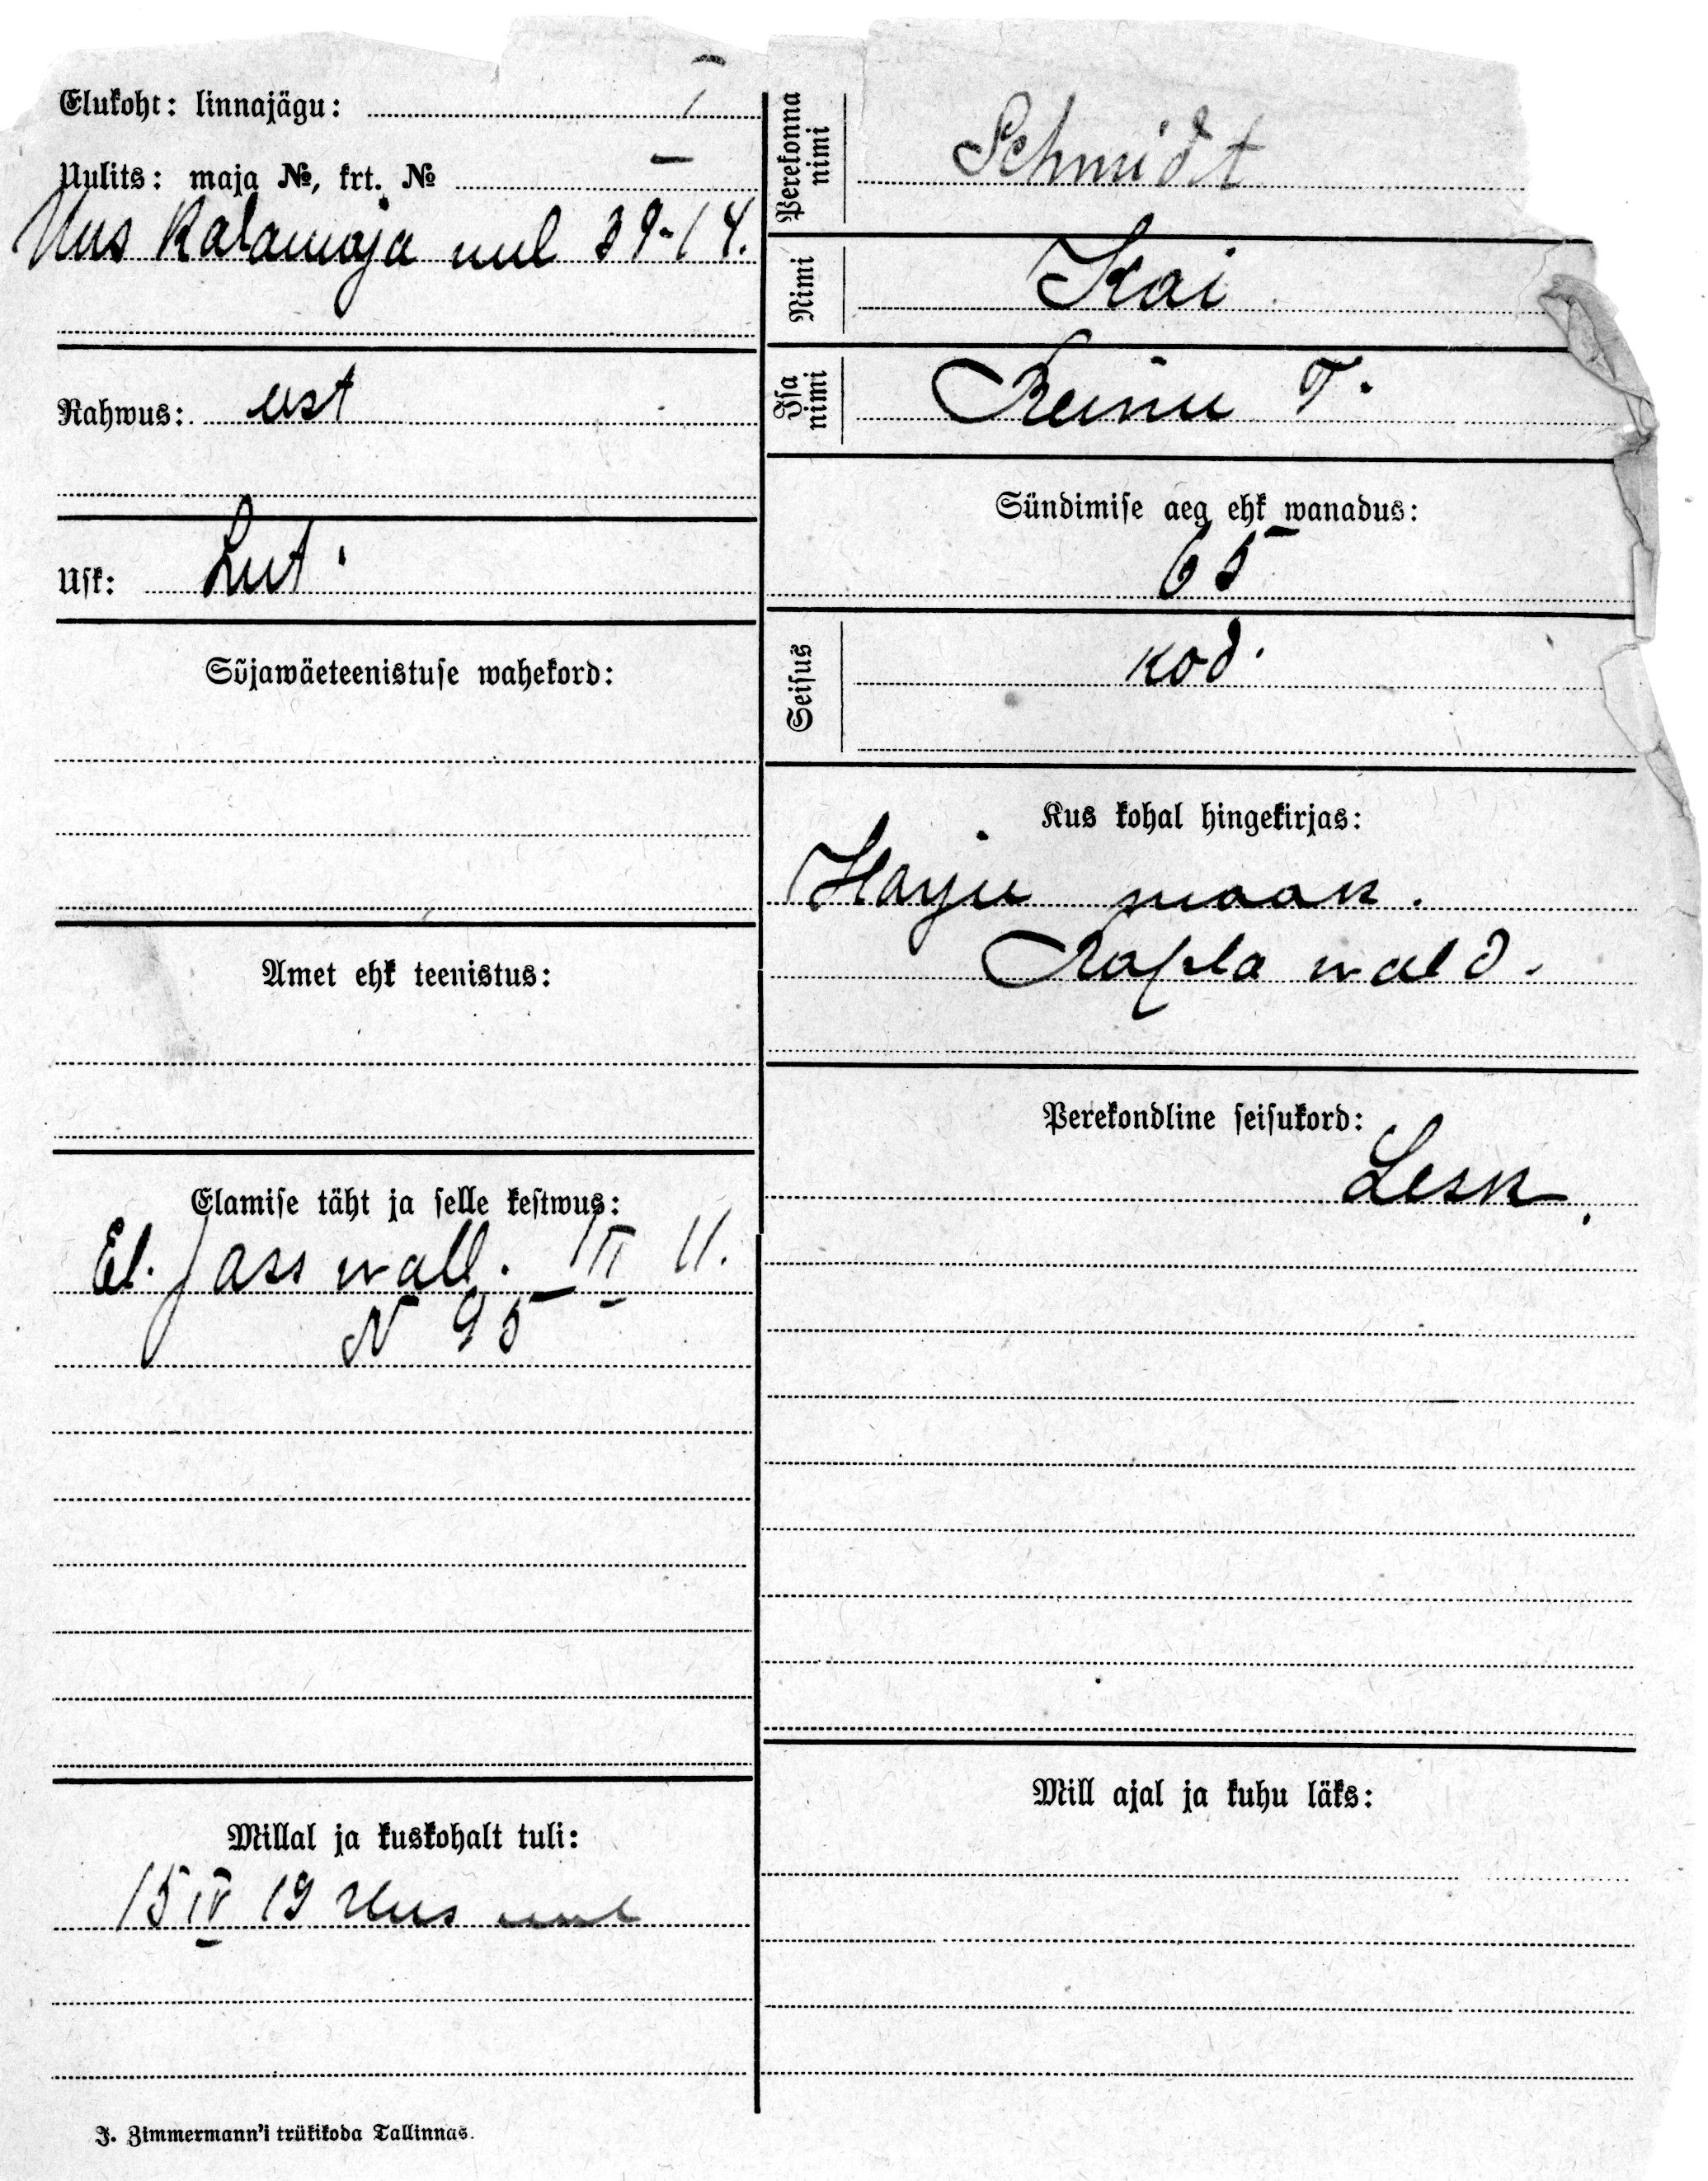 Elukoht: linnajägu: I
Uulits: maja №, krt. №
Uus Kalamaja uul 39-14.
Rahwus: eest
Usk: Lut.
Sõjawäeteenistuse wahekord:
Amet ehk teenistus:
Elamise täht ja selle kestwus:
El. pass wall. III 11.
N 95
Millal ja kuskohalt tuli:
15 IV 19 Uus uul
J. Zimmermann'i trükikoda Tallinnas.
Perekonna nimi
Schmidt
Nimi
Kai
Isa nimi
Reinu T.
Sündimise aeg ehk wanadus:
65
Seisus
kod.
Kus kohal hingekirjas:
Harju maak.
Rapla wald.
Perekondline seisukord:
Lesk.
Mill ajal ja kuhu läks: